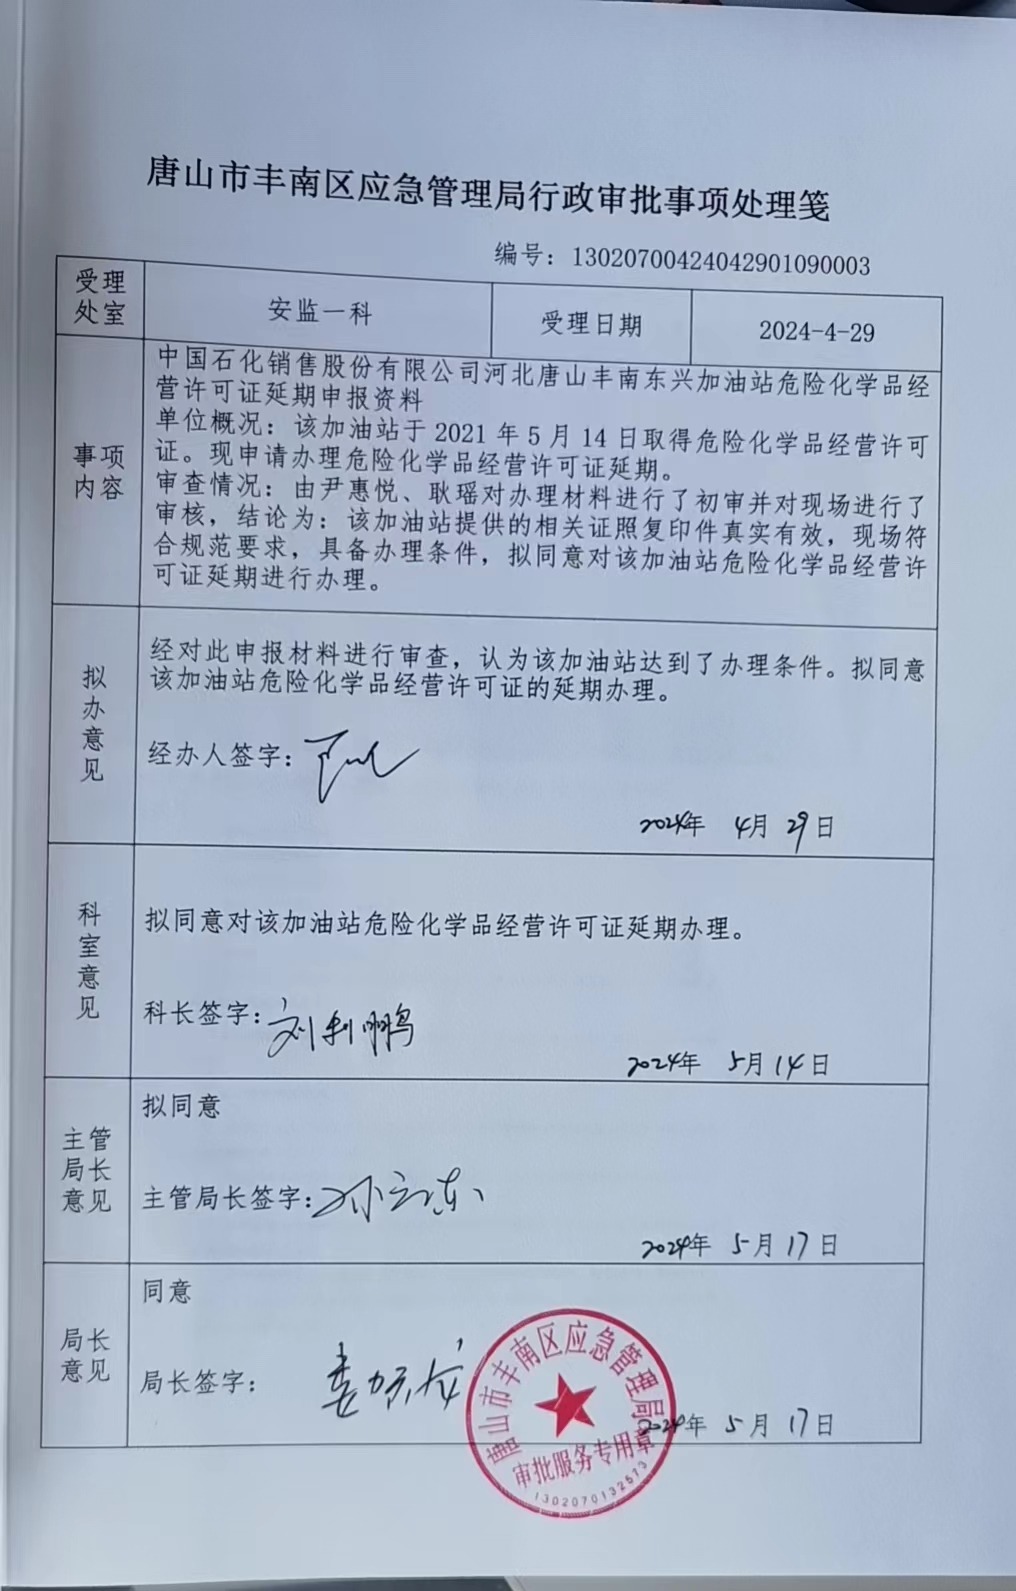 唐山市丰南区应急管理局行政审批事项处理笺
编号：13020700424042901090003
受理处室
安监一科
受理日期
2024-4-29
事项内容
中国石化销售股份有限公司河北唐山丰南东兴加油站危险化学品经
营许可证延期申报资料
单位概况：该加油站于 2021 年 5 月 14 日取得危险化学品经营许可
证。现申请办理危险化学品经营许可证延期。
审查情况：由尹惠悦、耿瑶对办理材料进行了初审并对现场进行了
审核，结论为：该加油站提供的相关证照复印件真实有效，现场符
合规范要求，具备办理条件，拟同意对该加油站危险化学品经营许
可证延期进行办理。
拟办意见
经对此申报材料进行审查，认为该加油站达到了办理条件。拟同意
该加油站危险化学品经营许可证的延期办理。
经办人签字：
2024年 4月 29日
科室意见
拟同意对该加油站危险化学品经营许可证延期办理。
科长签字：刘利鹏
2024年 5月14日
主管局长意见
拟同意
主管局长签字：
2024年 5月17日
局长意见
同意
局长签字：
2024年 5月17日
唐山市丰南区应急管理局
审批服务专用章
1302070132573